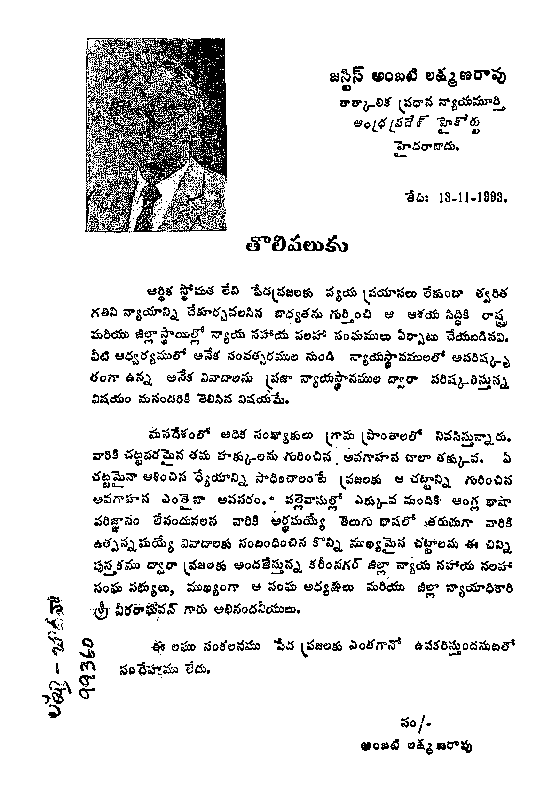 జస్టిస్ అంబటి లక్ష్మణరావు
తాత్కాలిక ప్రధాన న్యాయమూర్తి
ఆంధ్ర ప్రదేశ్ హైకోర్టు
హైదరాబాదు.
తేది: 13-11-1993.
తొలిపలుకు
ఆర్థిక స్తోమత లేని పేదప్రజలకు వ్యయ ప్రయాసలు లేకుండా త్వరిత
గతిని న్యాయాన్ని చేకూర్చవలసిన బాధ్యతను గుర్తించి ఆ ఆశయ సిద్ధికి రాష్ట్ర
మరియు జిల్లా స్థాయిల్లో న్యాయ సహాయ సలహా సంఘములు ఏర్పాటు చేయబడినవి.
వీటి ఆధ్వర్యములో అనేక సంవత్సరముల నుండి న్యాయస్థానములలో అపరిష్కృ
తంగా ఉన్న అనేక వివాదాలను ప్రజా న్యాయస్థానముల ద్వారా పరిష్కరిస్తున్న
విషయం మనందరికీ తెలిసిన విషయమే.
మనదేశంలో అధిక సంఖ్యాకులు గ్రామ ప్రాంతాలలో నివసిస్తున్నారు.
వారికి చట్టపరమైన తమ హక్కులను గురించిన అవగాహన చాలా తక్కువ. ఏ
చట్టమైనా ఆశించిన ధ్యేయాన్ని సాధించాలంటే ప్రజలకు ఆ చట్టాన్ని గురించిన
అవగాహన ఎంతైనా అవసరం. పల్లెవాసుల్లో ఎక్కువ మందికి ఆంగ్ల భాషా
పరిజ్ఞానం లేనందువలన వారికి అర్థమయ్యే తెలుగు భాషలో తరుచుగా వారికి
ఉత్పన్నమయ్యే వివాదాలకు సంబంధించిన కొన్ని ముఖ్యమైన చట్టాలను ఈ చిన్ని
పుస్తకము ద్వారా ప్రజలకు అందజేస్తున్న కరీంనగర్ జిల్లా న్యాయ సహాయ సలహా
సంఘ సభ్యులు, ముఖ్యంగా ఆ సంఘ అధ్యక్షులు మరియు జిల్లా న్యాయాధికారి
శ్రీ వీరరాఘవన్ గారు అభినందనీయులు.
ఈ లఘు సంకలనము పేద ప్రజలకు ఎంతగానో ఉపకరిస్తుందనుటలో
సందేహము లేదు.
సం/-
అంబటి లక్ష్మణరావు
99360